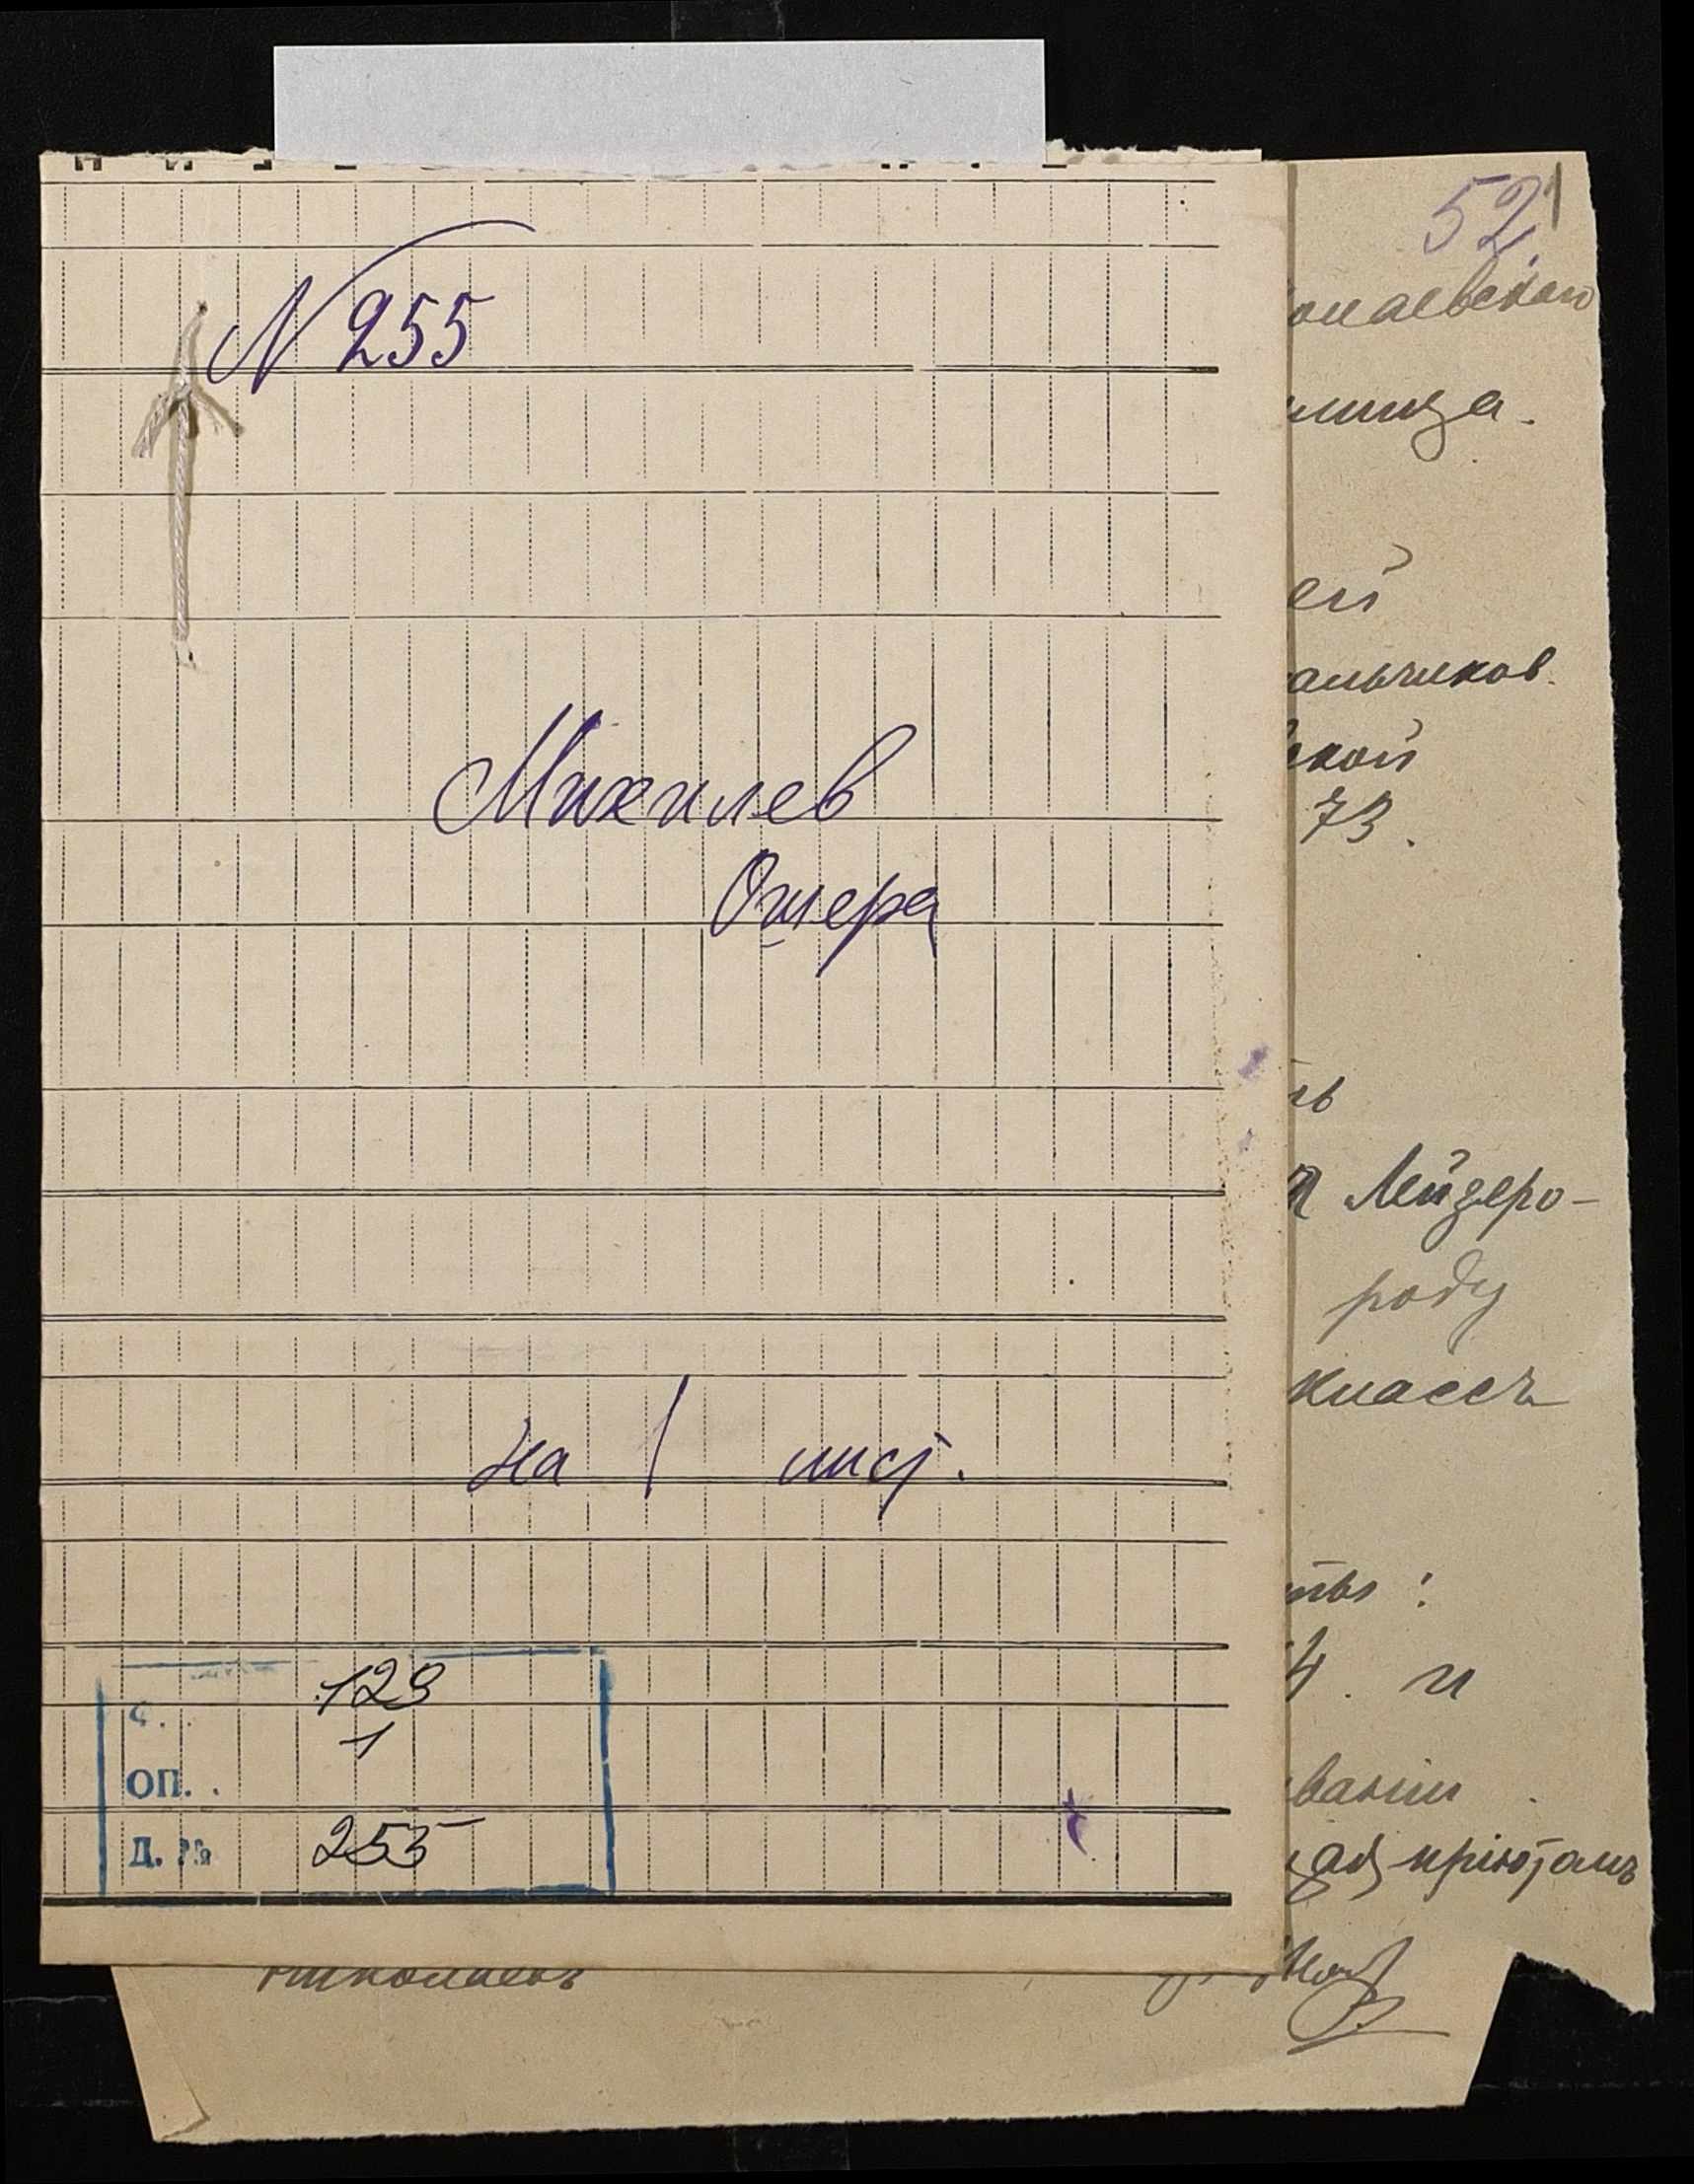 N 255
Михилев
Ошера
на 1 лист.
Ф. . 129
1
ОП. .
Д. № 255
52 1
олаевскаго
илища.
ей
альчиков.
ской
73.
ть
Лейзеро-
роду
классъ
ты :
4. и
вании
пріютамъ
Николаевъ